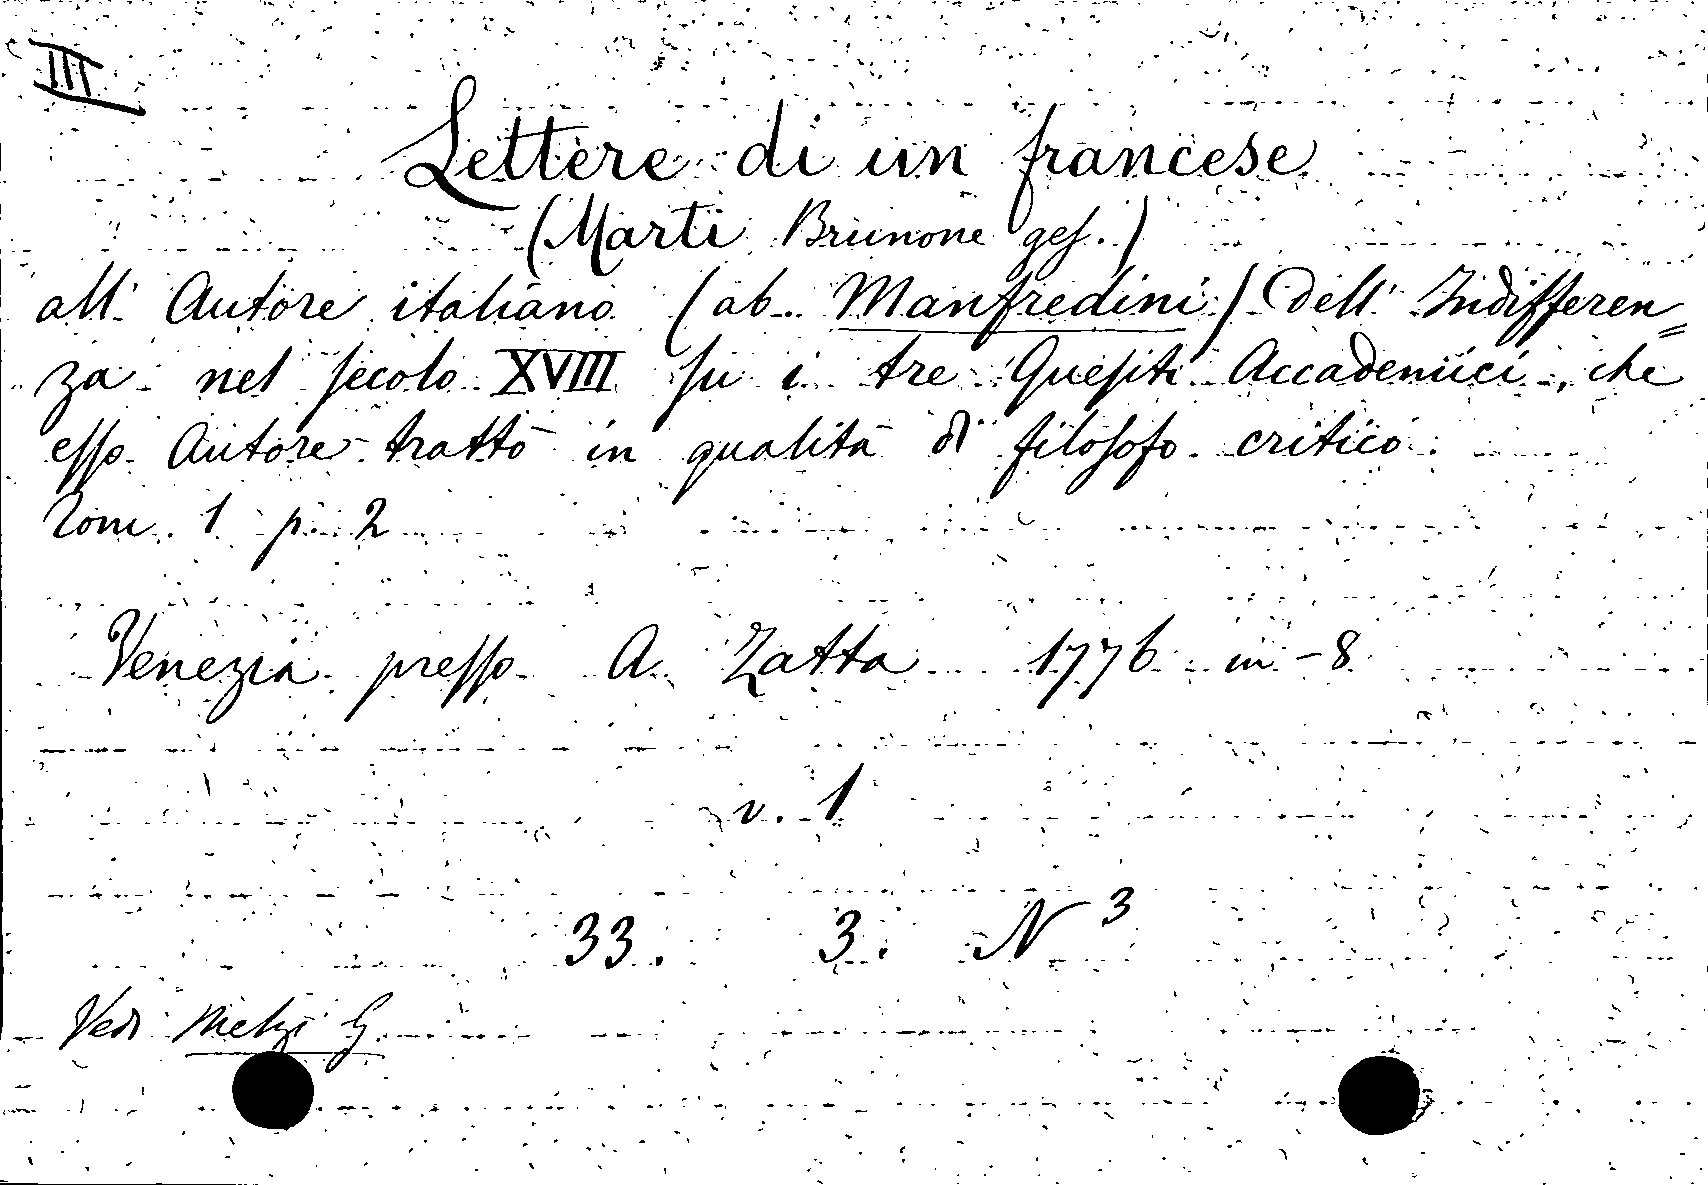 III
Lettere di un francese
(Marti Brunone ges.)
all' Autore italiano (ab. Manfredini) dell' Indifferen=
za nel secolo XVIII su i tre Quesiti Accademici, che
esso Autore trattò in qualità di filosofo critico.
Tom. 1 p. 2
Venezia presso A. Zatta 1776 in-8
v. 1
33. 3. N 3
Vedi Melzi G.